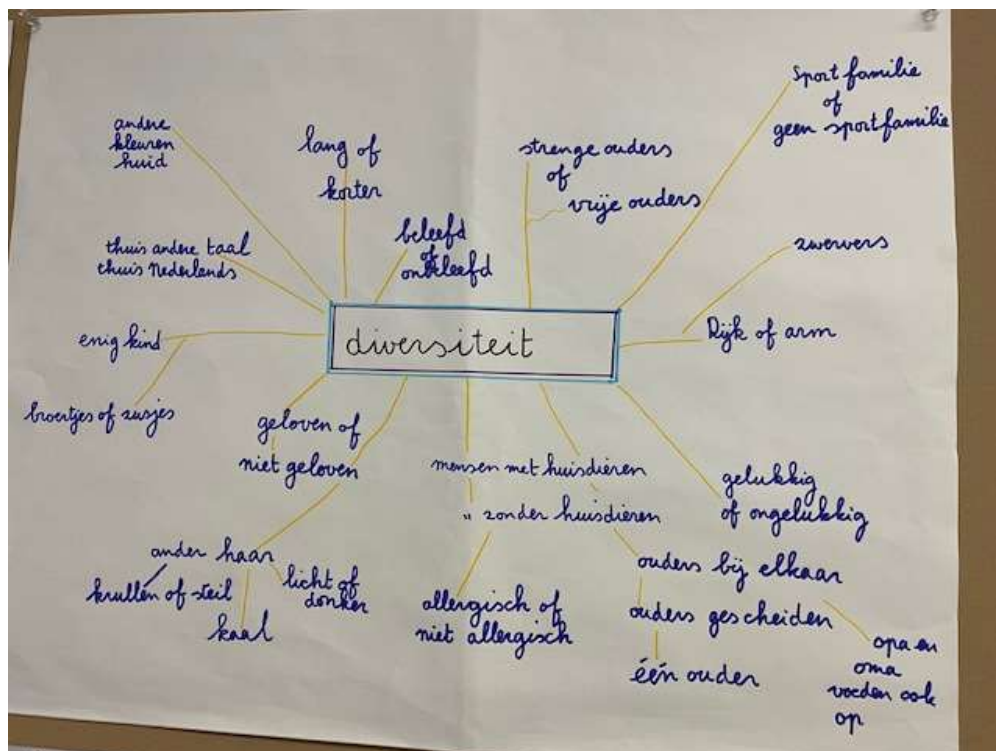 andere
kleuren
huid
lang of
korter
beleefd
of
onbeleefd
strenge ouders
of
vrije ouders
Sport familie
of
geen sportfamilie
thuis andere taal
thuis Nederlands
zwervers
enig kind
diversiteit
Rijk of arm
broertjes of zusjes
geloven of
niet geloven
mensen met huisdieren
" zonder huisdieren
gelukkig
of ongelukkig
ander haar
krullen of steil
licht of
donker
kaal
allergisch of
niet allergisch
ouders bij elkaar
ouders gescheiden
één ouder
opa en
oma
voeden ook
op